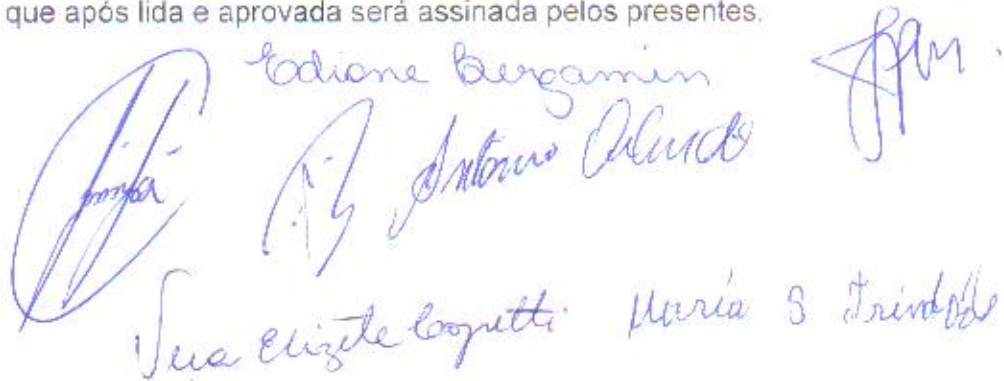 que após lida e aprovada será assinada pelos presentes.
Ediane Bergamin
Antonio
Vera Elizete Copetti Maria S Trindade